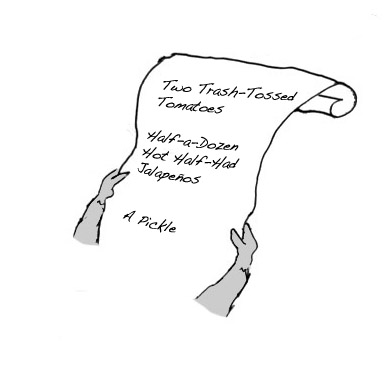 Two Trash-Tossed
Tomatoes
Half-a-Dozen
Hot Half-Had
Jalapeños
A Pickle